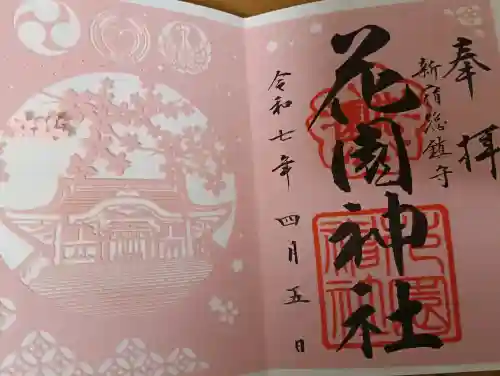 奉拝
新宿総鎮守
花園神社
令和七年四月五日